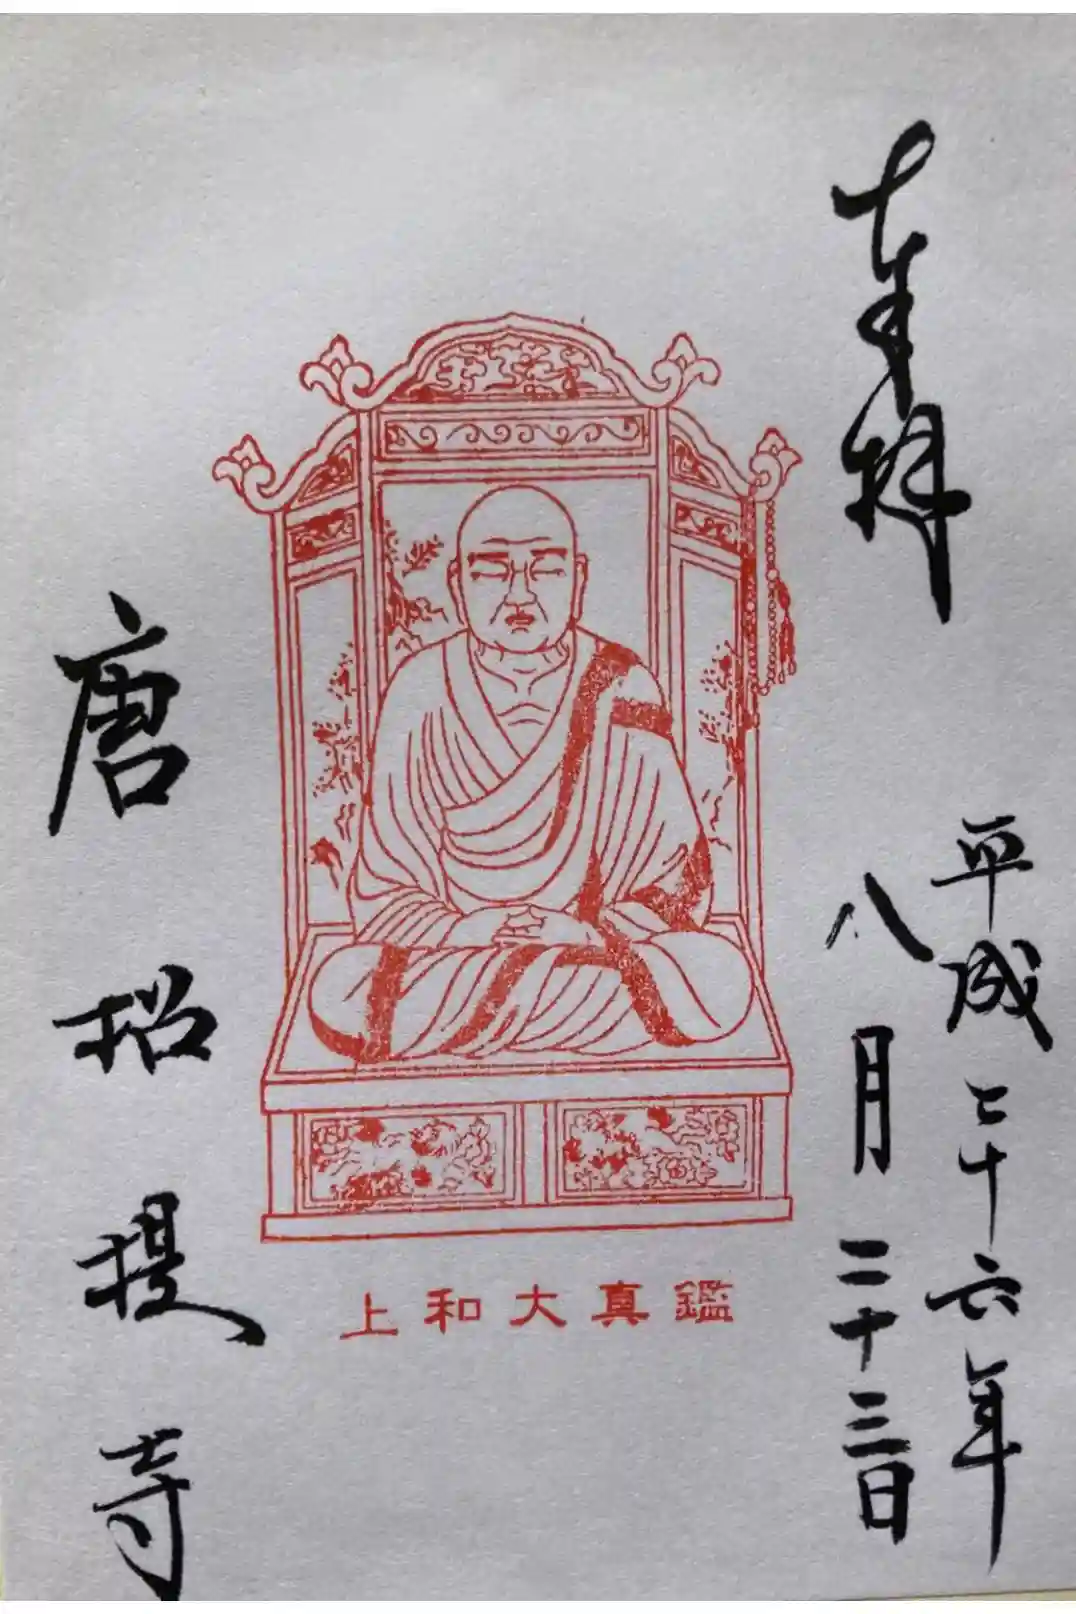 奉拝
平成二十六年
八月二十三日
鑑真大和上
唐招提寺